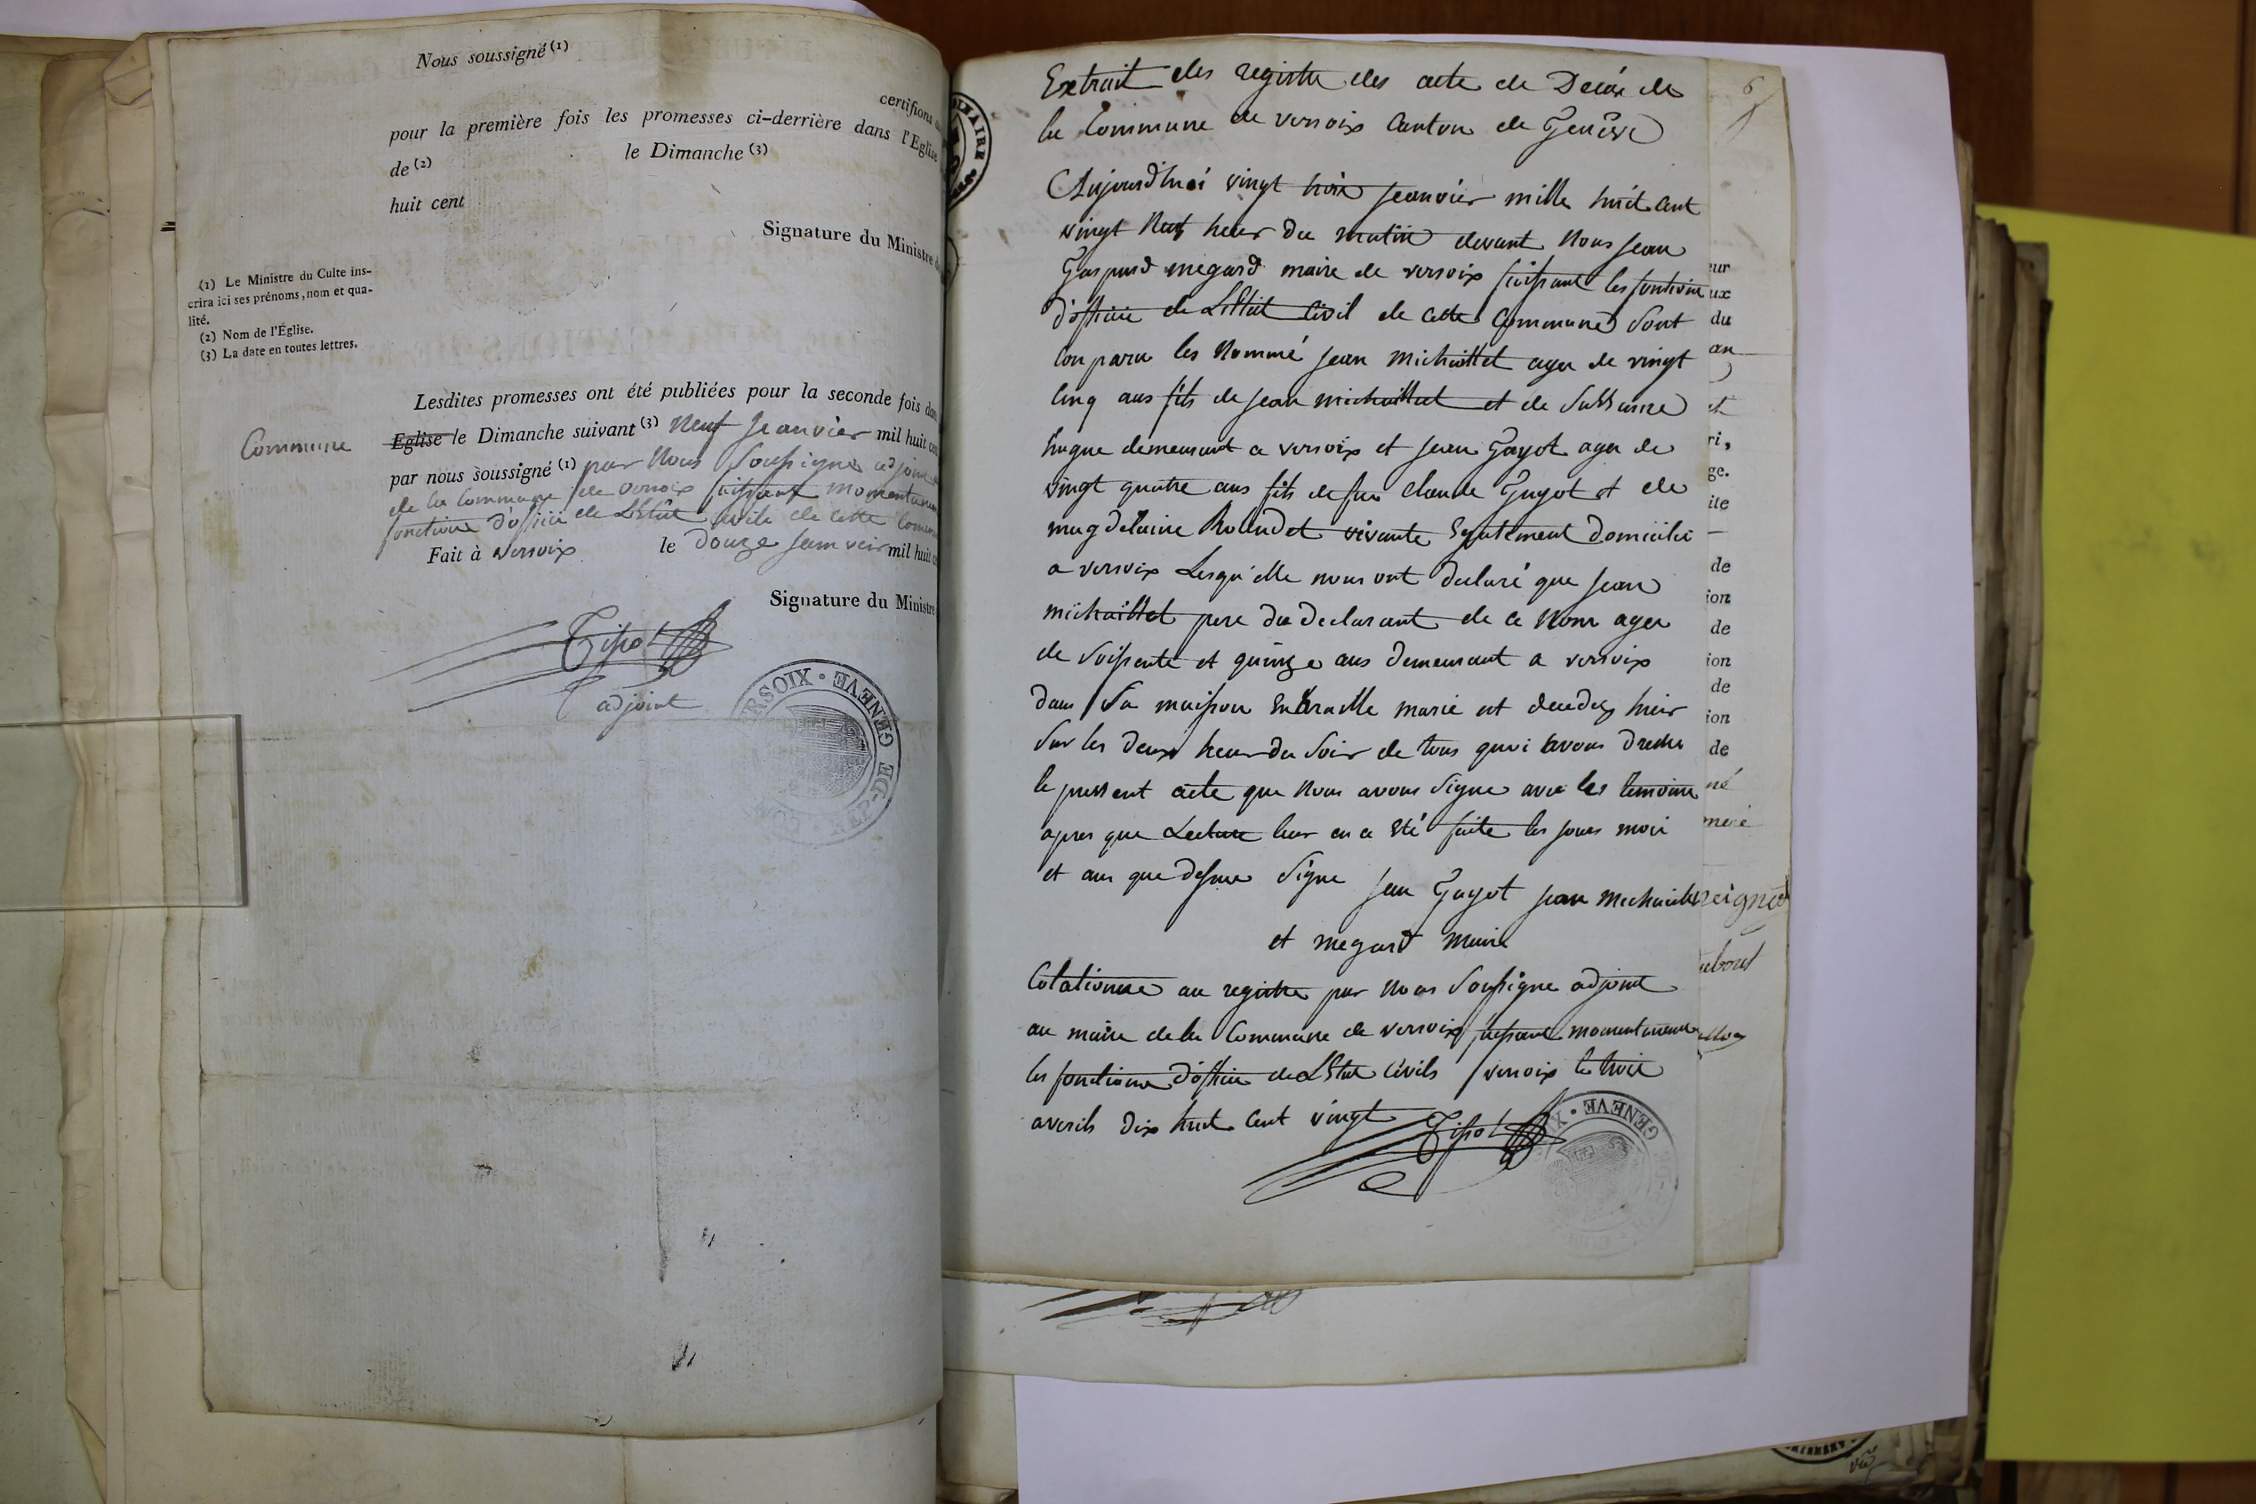 Nous soussigné (1)
certifions
pour la première fois les promesses ci-derrière dans l'Eglise
de (2) le Dimanche (3)
huit cent
Signature du Ministre
(1) Le Ministre du Culte ins-
crira ici ses prénoms, nom et qua-
lité.
(2) Nom de l'Église.
(3) La date en toutes lettres.
Lesdites promesses ont été publiées pour la seconde fois dans
Commune Eglise le Dimanche suivant (3) Neuf Jeanvier mil huit cent
par nous soussigné (1) par Nous Soussigne adjoint
de la Commune de versoix faissant momentanem
fonctions d'officié de L'Etat civile de cette Commun
Fait à versoix le douze Jeanvier mil huit
Signature du Ministre
adjoint
GENEVE
Extrait des registre des acte de Décés de
la Commune de versoix Canton de Genève
Aujourd'huoi vingt trois Jeanvier mille huit cent
vingt Neuf heur du matin devant Nous Jean
Gaspard megard maire de versoix faissant les fontions
d'officie de L'Etat Civil de cette Commune Sont
Conparu les Nommé Jean michaillet ager de vingt
Cinq ans fils de Jean michaillet et de Sussanne
hugue demeurant a versoix et Jean Guyot ager de
vingt quatre ans fils de feu Claude Guyot et de
magdelaine Roudet vivante Egalement domicilié
a versoix Lesqu'elle nous ont declaré que Jean
michaillet pere du declarant de ce Nom ager
de Soissente et quinze ans demeurant a versoix
dans Sa maisson marie est decedez hier
Sur les deux heur du Soir de tous quoi avons dresses
le pressent acte que Nous avons Signe avec les temoins
apres que Lecture leur en a Eté faite les jours mois
et ans que dessus Signe Jean Guyot Jean michaillet
et megard maire
Colationne au registre par Nous Soussigne adjoint
au maire de la Commune de versoix faissant momentanement
les fonctions d'officie de L'Etat Civils versoix le trois
averils dix huit Cent vingt
GENEVE
6
ur
ux
du
an
et
ri,
ge.
ite
de
ion
de
ion
de
ion
de
né